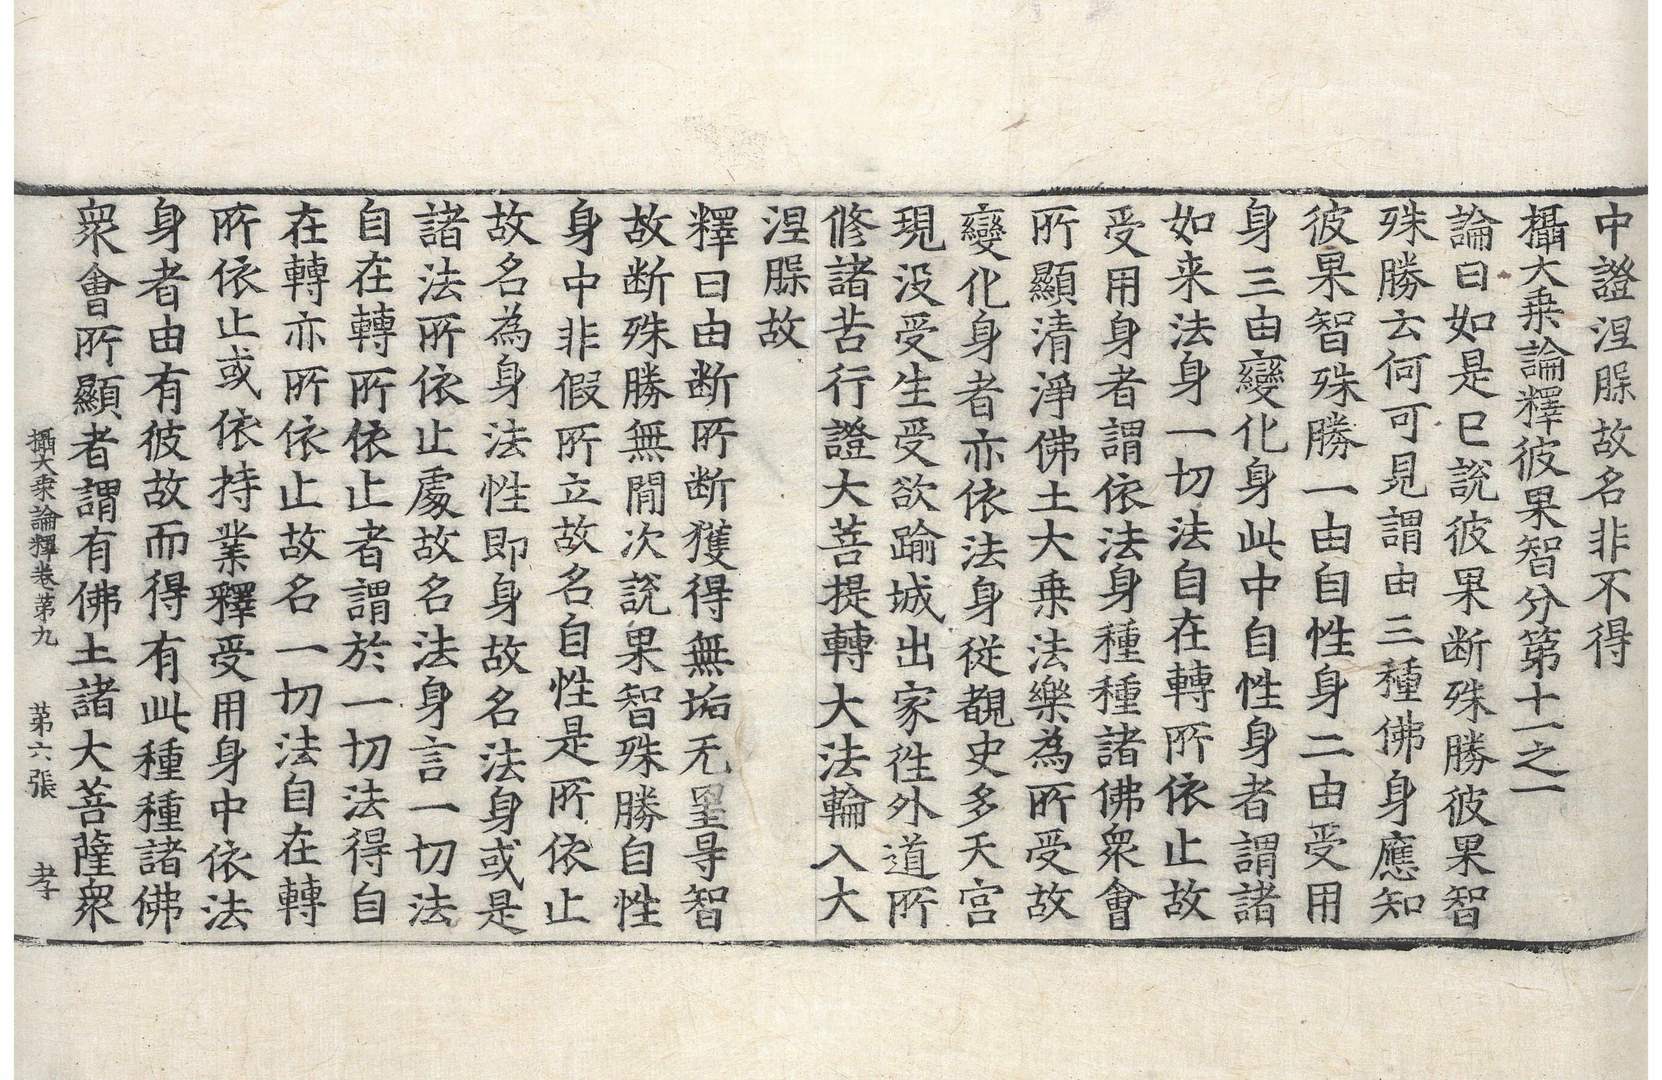 中證涅槃故名非不得
攝大乗論釋彼果智分第十一之一
論曰如是已說彼果断殊勝彼果智
殊勝云何可見謂由三種佛身應知
彼果智殊勝一由自性身二由受用
身三由變化身此中自性身者謂諸
如来法身一切法自在轉所依止故
受用身者謂依法身種種諸佛衆會
所顯清淨佛土大乗法樂為所受故
變化身者亦依法身從覩史多天宮
現没受生受欲踰城出家徃外道所
修諸苦行證大菩提轉大法輪入大
涅槃故
釋曰由断所断獲得無垢无罣㝵智
故断殊勝無間次說果智殊勝自性
身中非假所立故名自性是所依止
故名為身法性即身故名法身或是
諸法所依止處故名法身言一切法
自在轉所依止者謂於一切法得自
在轉亦所依止故名一切法自在轉
所依止或依持業釋受用身中依法
身者由有彼故而得有此種種諸佛
衆會所顯者謂有佛土諸大菩薩衆
攝大乗論釋卷第九 第六張 孝